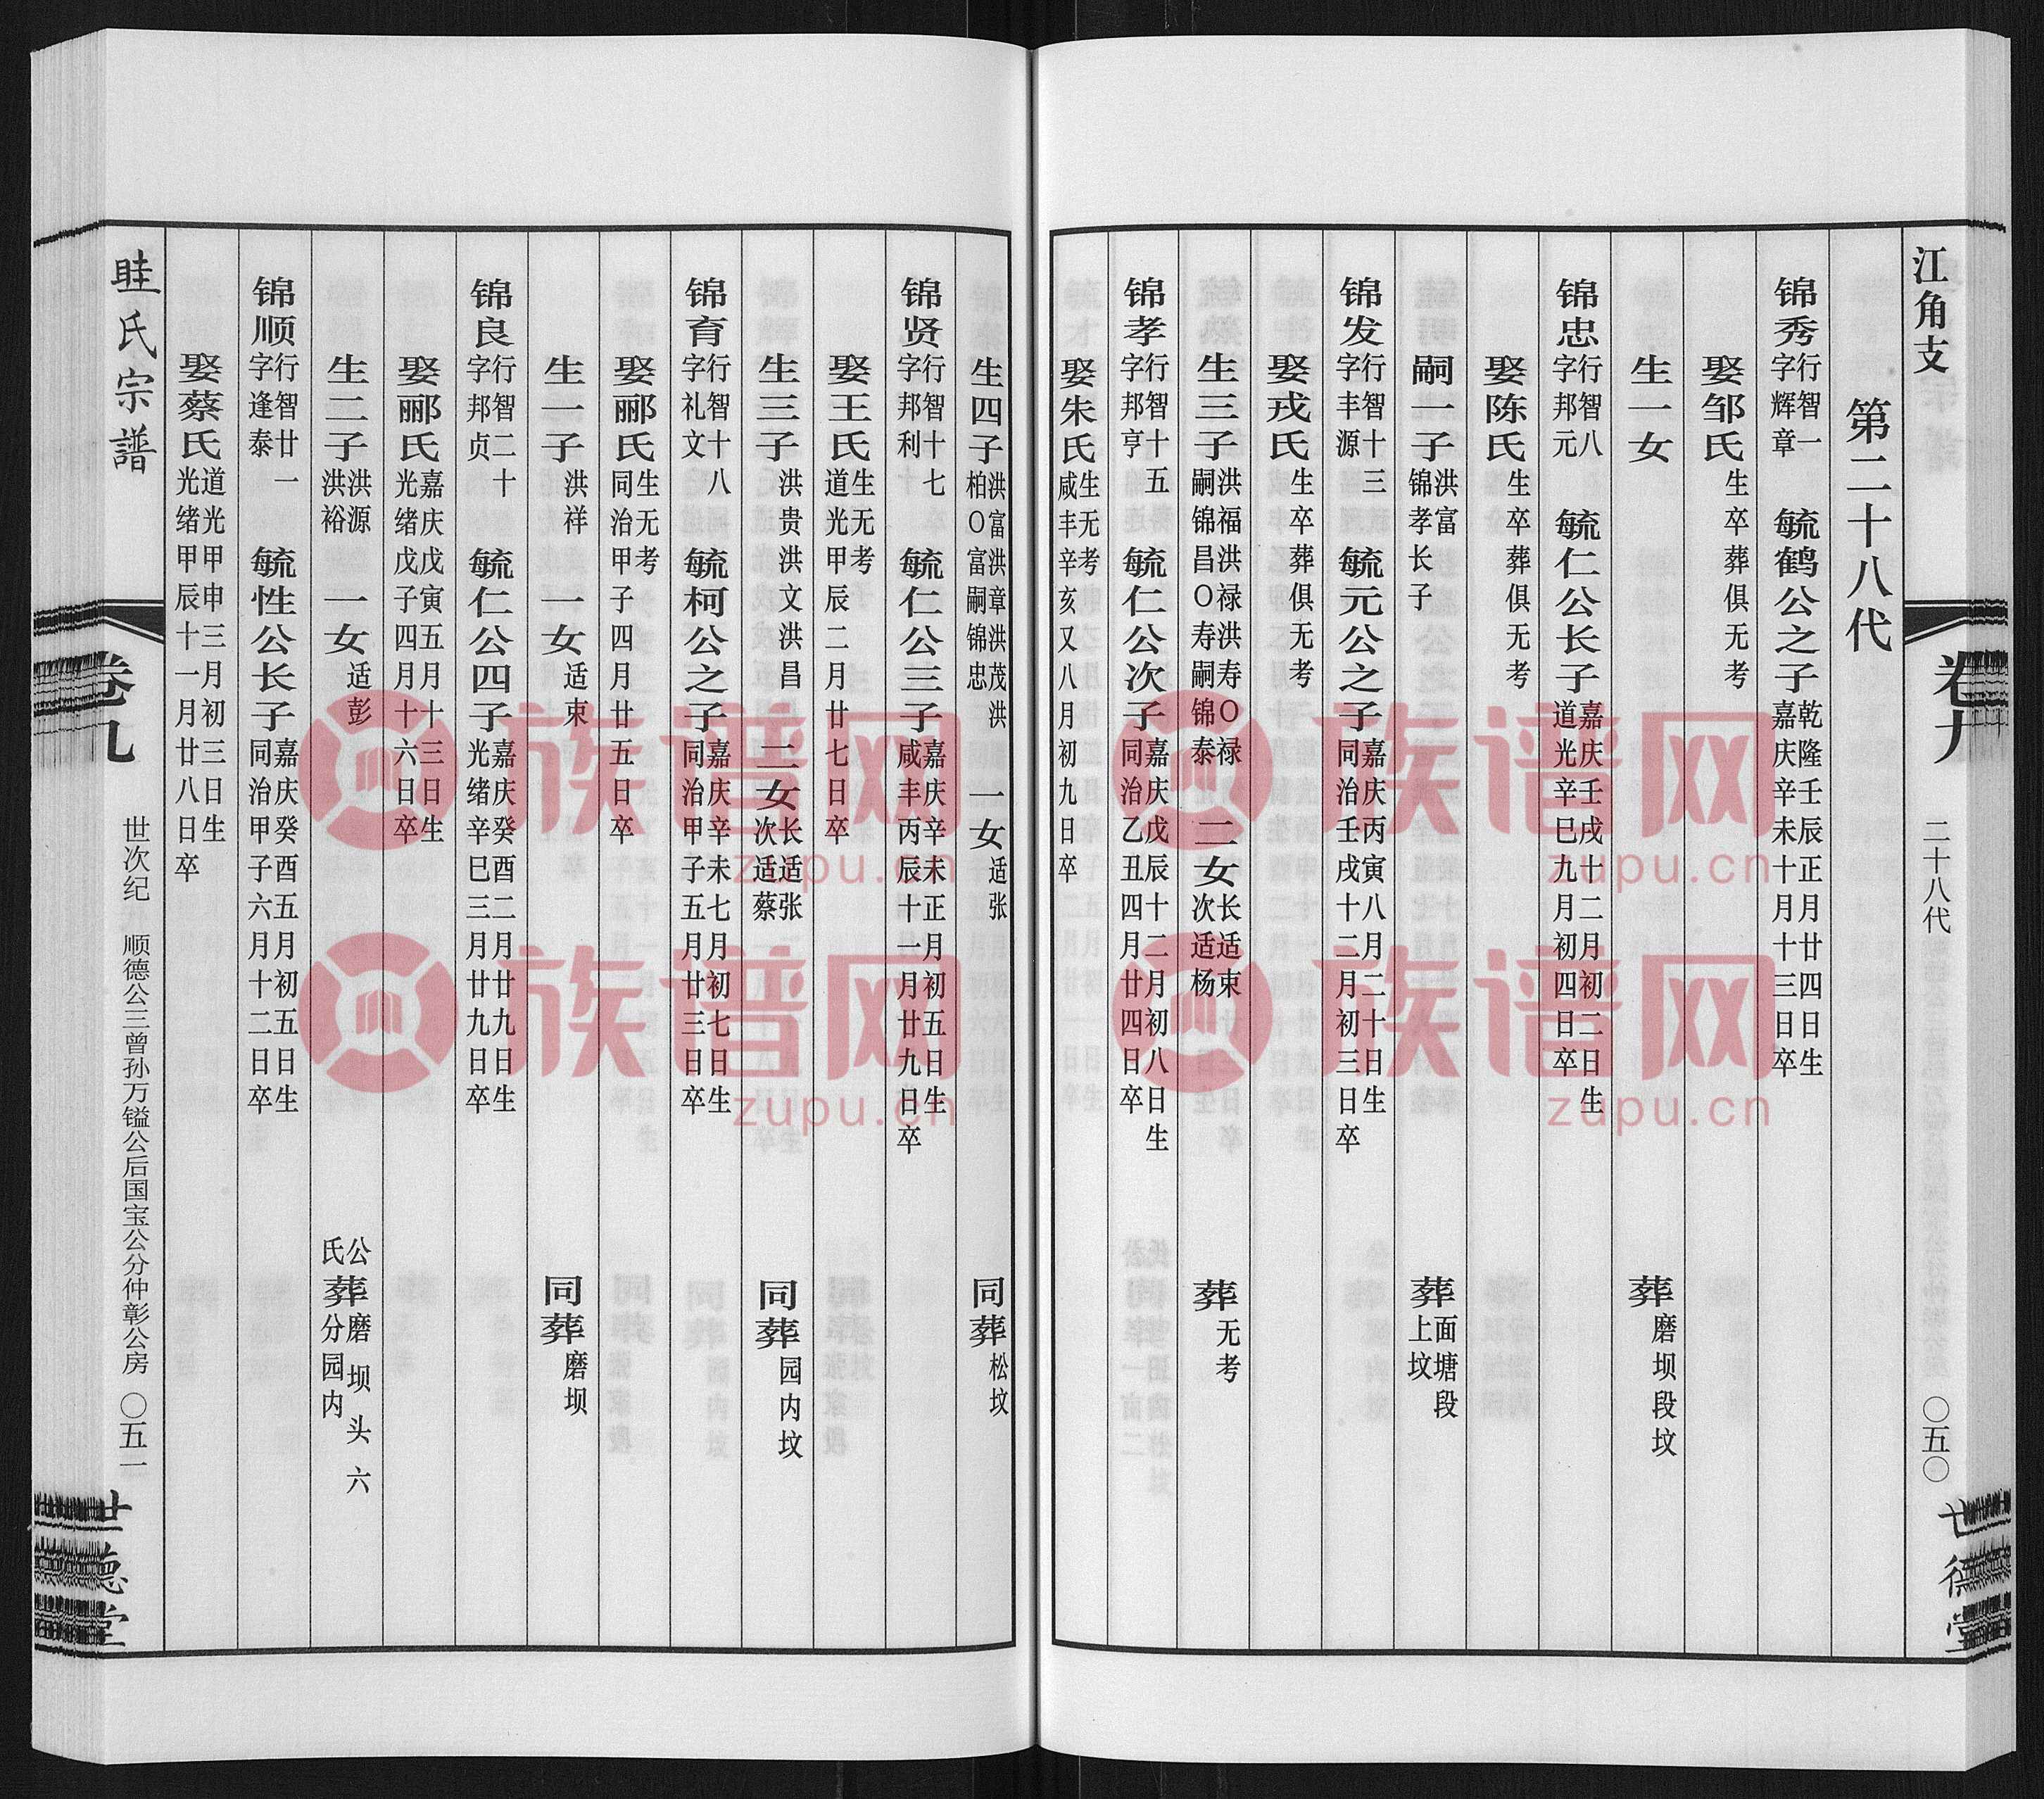 江角支
卷九
二十八代
〇五〇
世德堂
第二十八代
锦秀 行智一 字辉章 毓鹤公之子 乾隆壬辰正月廿四日生 嘉庆辛未十月十三日卒
娶邹氏 生卒葬俱无考
生一女 葬磨坝段坟
锦忠 行智八 字邦元 毓仁公长子 嘉庆壬戌十二月初二日生 道光辛巳九月初四日卒
娶陈氏 生卒葬俱无考
嗣一子 洪富 锦孝长子 葬面塘段上坟
锦发 行智十三 字丰源 毓元公之子 嘉庆丙寅八月二十日生 同治壬戌十二月初三日卒
娶戎氏 生卒葬俱无考
生三子 洪福洪禄洪寿〇禄嗣锦昌〇寿嗣锦泰 二女 长适束 次适杨 葬无考
锦孝 行智十五 字邦亨 毓仁公次子 嘉庆戊辰十二月初八日生 同治乙丑四月廿四日卒
娶朱氏 生无考 咸丰辛亥又八月初九日卒
生四子 洪富洪章洪茂洪柏〇富嗣锦忠 一女 适张 同葬松坟
锦贤 行智十七 字邦利 毓仁公三子 嘉庆辛未正月初五日生 咸丰丙辰十一月廿九日卒
娶王氏 生无考 道光甲辰二月廿七日卒
生三子 洪贵洪文洪昌 二女 长适张 次适蔡 同葬园内坟
锦育 行智十八 字礼文 毓柯公之子 嘉庆辛未七月初七日生 同治甲子五月廿三日卒
娶郦氏 生无考 同治甲子四月廿五日卒
生一子 洪祥 一女 适束 同葬磨坝
锦良 行智二十 字邦贞 毓仁公四子 嘉庆癸酉二月廿九日生 光绪辛巳三月廿九日卒
娶郦氏 嘉庆戊寅五月十三日生 光绪戊子四月十六日卒
生二子 洪源 洪裕 一女 适彭 公氏葬磨坝头六分园内
锦顺 行智廿一 字逢泰 毓性公长子 嘉庆癸酉五月初五日生 同治甲子六月十二日卒
娶蔡氏 道光甲申三月初三日生 光绪甲辰十一月廿八日卒
眭氏宗譜
卷九
世次纪 顺德公三曾孙万镒公后国宝公分仲彰公房
〇五一
世德堂
族谱网
zupu.cn
族谱网
zupu.cn
族谱网
zupu.cn
族谱网
zupu.cn